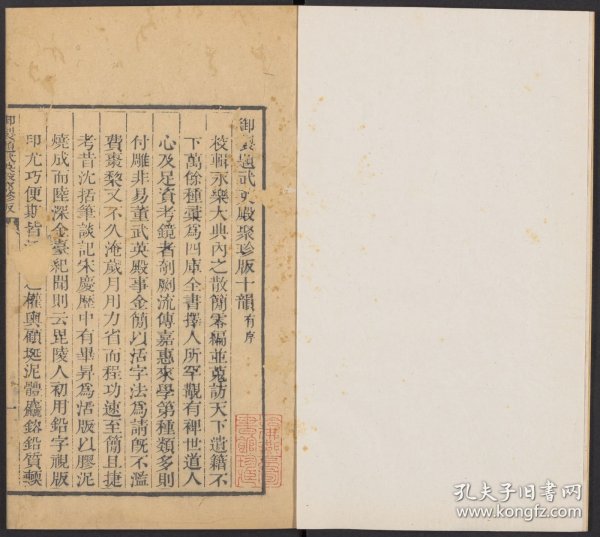 御製題武英殿聚珍版十韻有序
校輯永樂大典內之散簡零編並蒐訪天下遺籍不
下萬餘種彙為四庫全書擇人所罕覯有裨世道人
心及足資考鏡者剞劂流傳嘉惠來學第種類多則
付雕非易董武英殿事金簡以活字法為請既不濫
費棗棃又不久淹歲月用力省而程功速至簡且捷
考昔沈括筆談記宋慶歷中有畢昇為活版以膠泥
燒成而陸深金臺紀聞則云毘陵人初用鉛字視版
印尤巧便斯皆 之權輿顧埏泥體麤鎔鉛質輭
孔夫子旧书网
www.kongfz.com